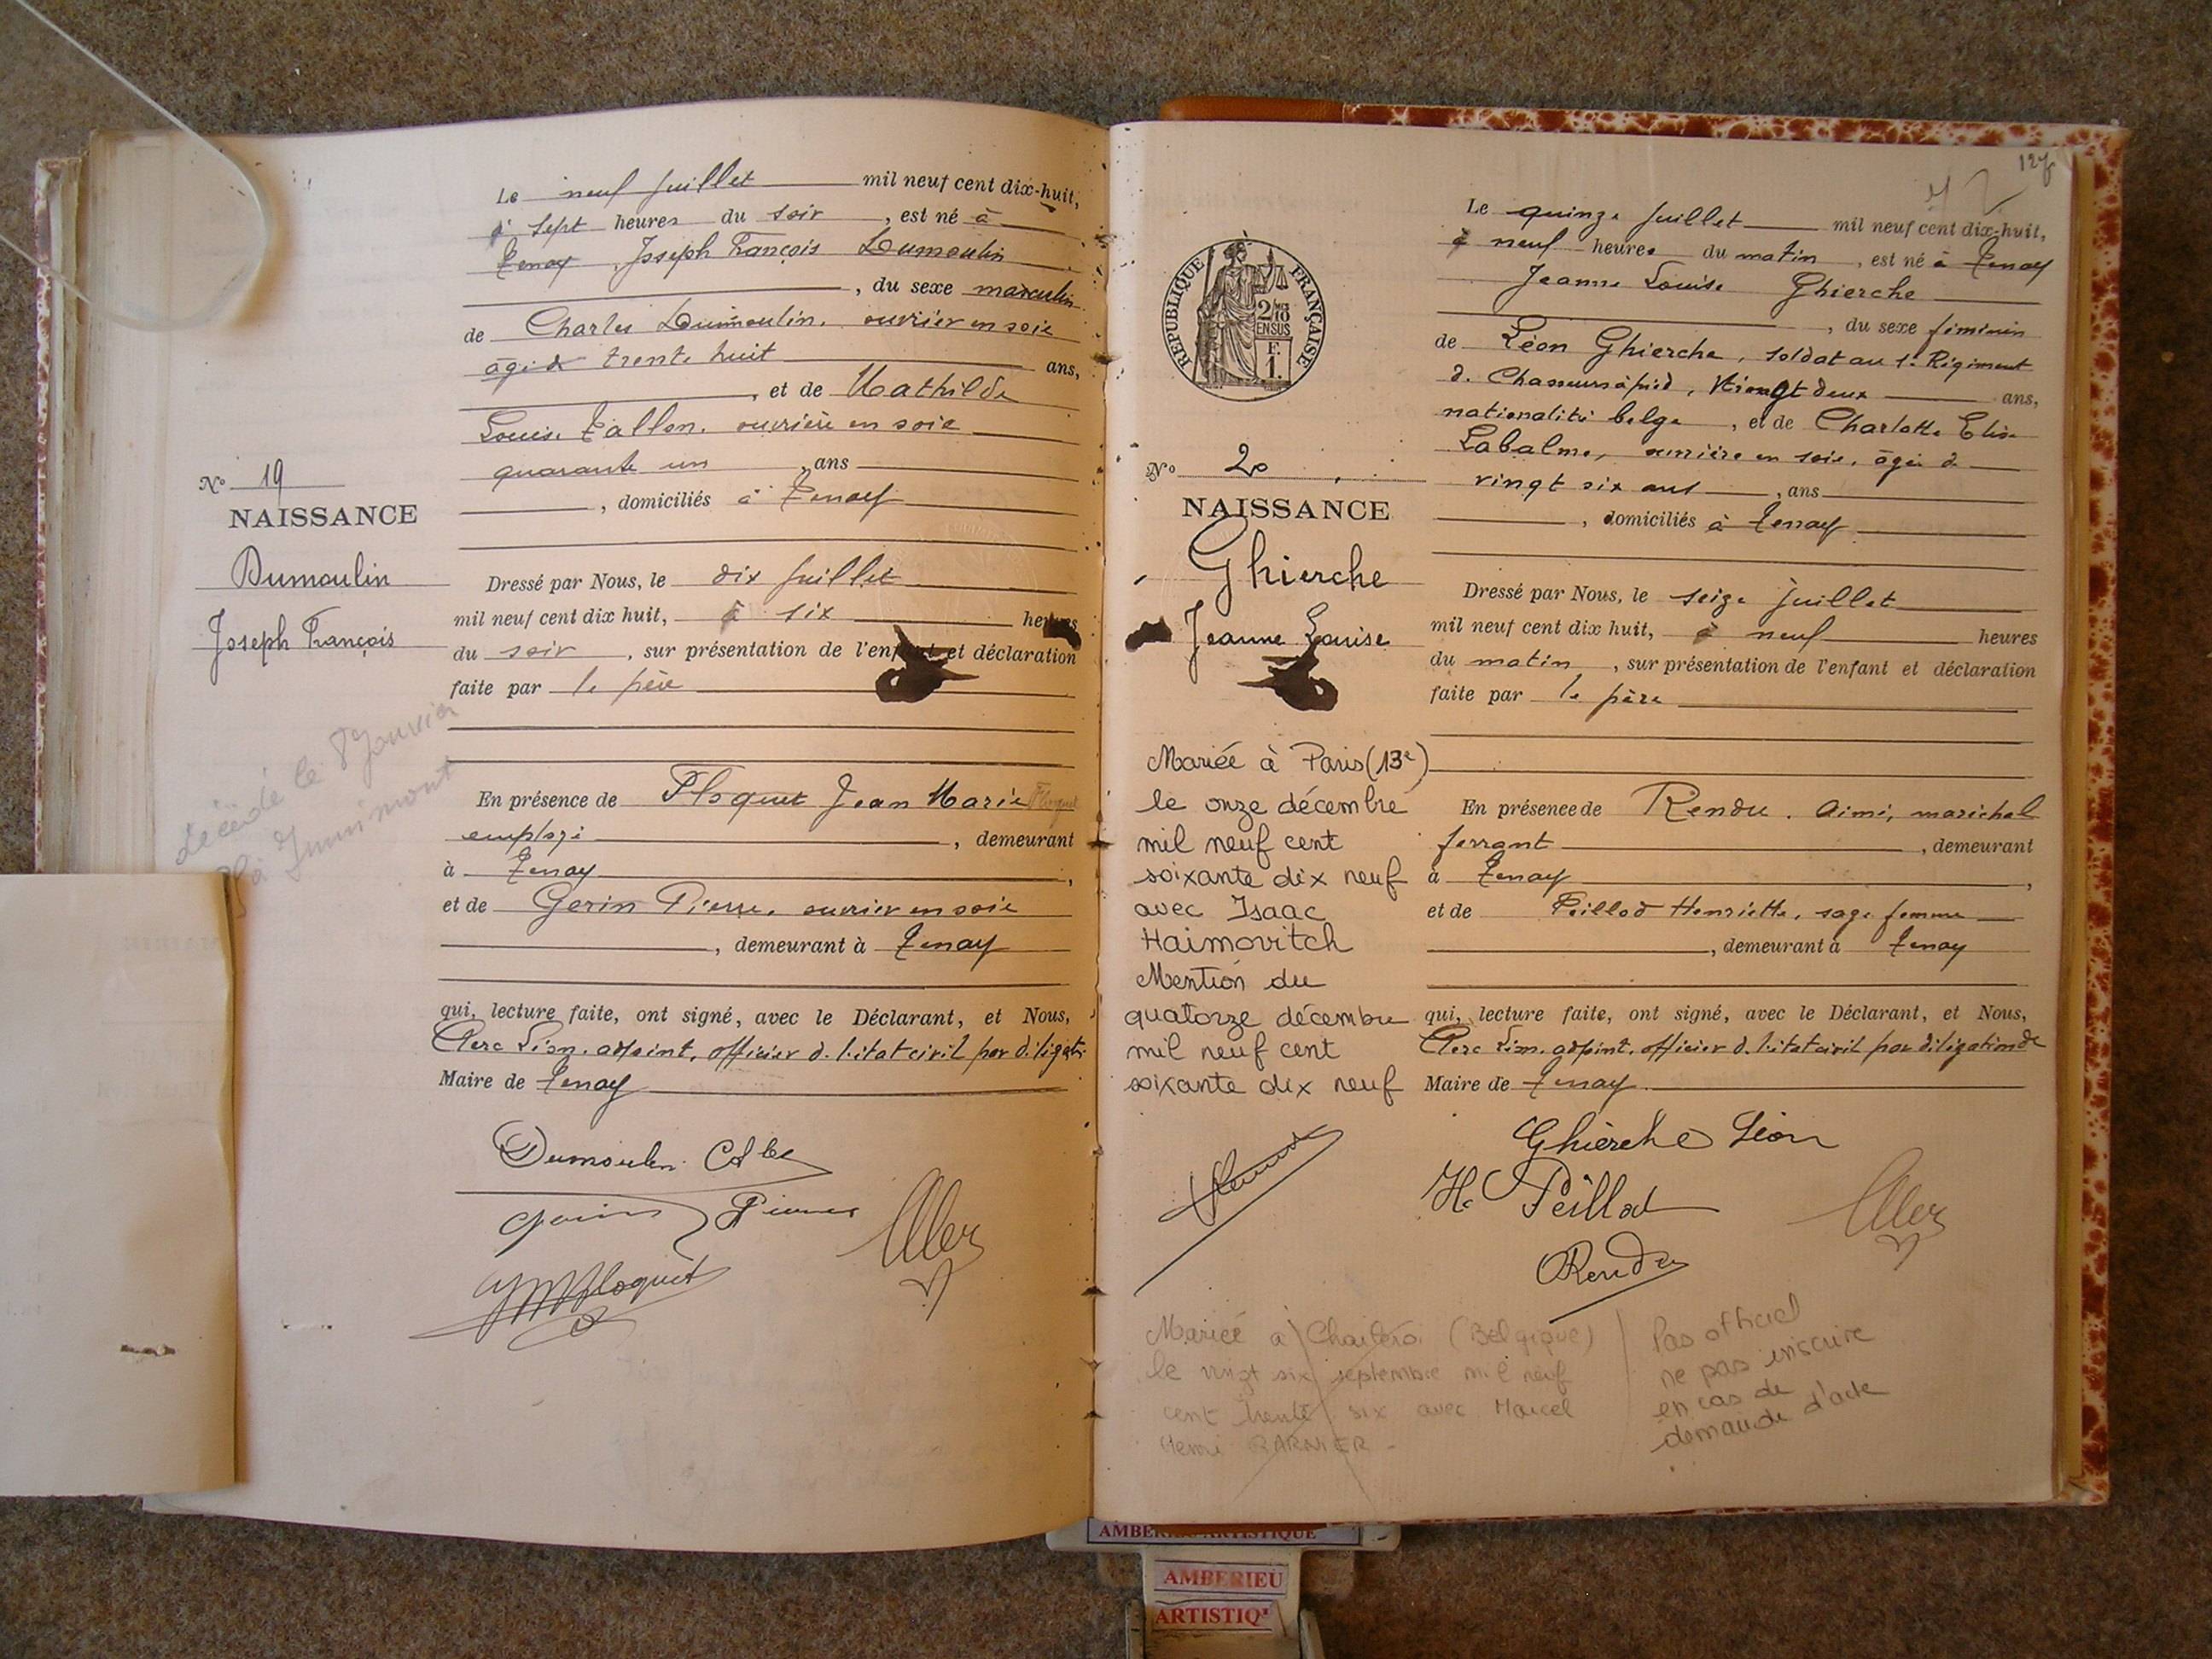 Le neuf juillet mil neuf cent dix-huit,
à sept heures du soir, est né à
Tenay, Joseph François Dumoulin
, du sexe masculin
de Charles Dumoulin, ouvrier en soie
âgé de trente huit ans,
, et de Mathilde
Louise Tallon, ouvrière en soie
quarante un, ans
, domiciliés à Tenay
N° 19
NAISSANCE
Dumoulin
Joseph François
décédé le 8 Janvier
à Jumimont
Dressé par Nous, le dix juillet
mil neuf cent dix huit, à six heures
du soir, sur présentation de l'enfant et déclaration
faite par le père
En présence de Floquet Jean Marie Floquet
employé, demeurant
à Tenay,
et de Gerin Pierre, ouvrier en soie
, demeurant à Tenay
qui, lecture faite, ont signé, avec le Déclarant, et Nous,
Clerc Léon, adjoint, officier d. l'état civil par déligati
Maire de Tenay
Dumoulin Ch les
Gerin Pierre
JM Floquet
127
Le quinze juillet mil neuf cent dix-huit,
à neuf heures du matin, est né à Tenay
Jeanne Louise Ghierche
, du sexe féminin
de Léon Ghierche, soldat au 1e Régiment
d. Chasseurs à pied, vingt deux ans,
nationalité belge, et de Charlotte Elise
Labalme, ouvrière en soie, âgée de
vingt six ans, ans
, domiciliés à Tenay
RÉPUBLIQUE FRANÇAISE
2/10 EN SUS
F.
1.
N° 20
NAISSANCE
Ghierche
Jeanne Louise
Dressé par Nous, le seize juillet
mil neuf cent dix huit, à neuf heures
du matin, sur présentation de l'enfant et déclaration
faite par le père
Mariée à Paris (13e)
le onze décembre
mil neuf cent
soixante dix neuf
avec Isaac
Haimovitch
Mention du
quatorze décembre
mil neuf cent
soixante dix neuf
En présence de Rendu, Aimé, maréchal
ferrant, demeurant
à Tenay,
et de Peillod Henriette, sage femme
, demeurant à Tenay
qui, lecture faite, ont signé, avec le Déclarant, et Nous,
Clerc Léon, adjoint, officier d. l'état civil par déligation de
Maire de Tenay
Ghierche Léon
H. Peillod
Rendu
Mariée à Charleroi (Belgique)
le vingt six septembre mil neuf
cent trente six avec Marcel
Henri
Pas officiel
ne pas inscrire
en cas de
demande d'acte
AMBERIEU ARTISTIQUE
AMBERIEU
ARTISTIQ